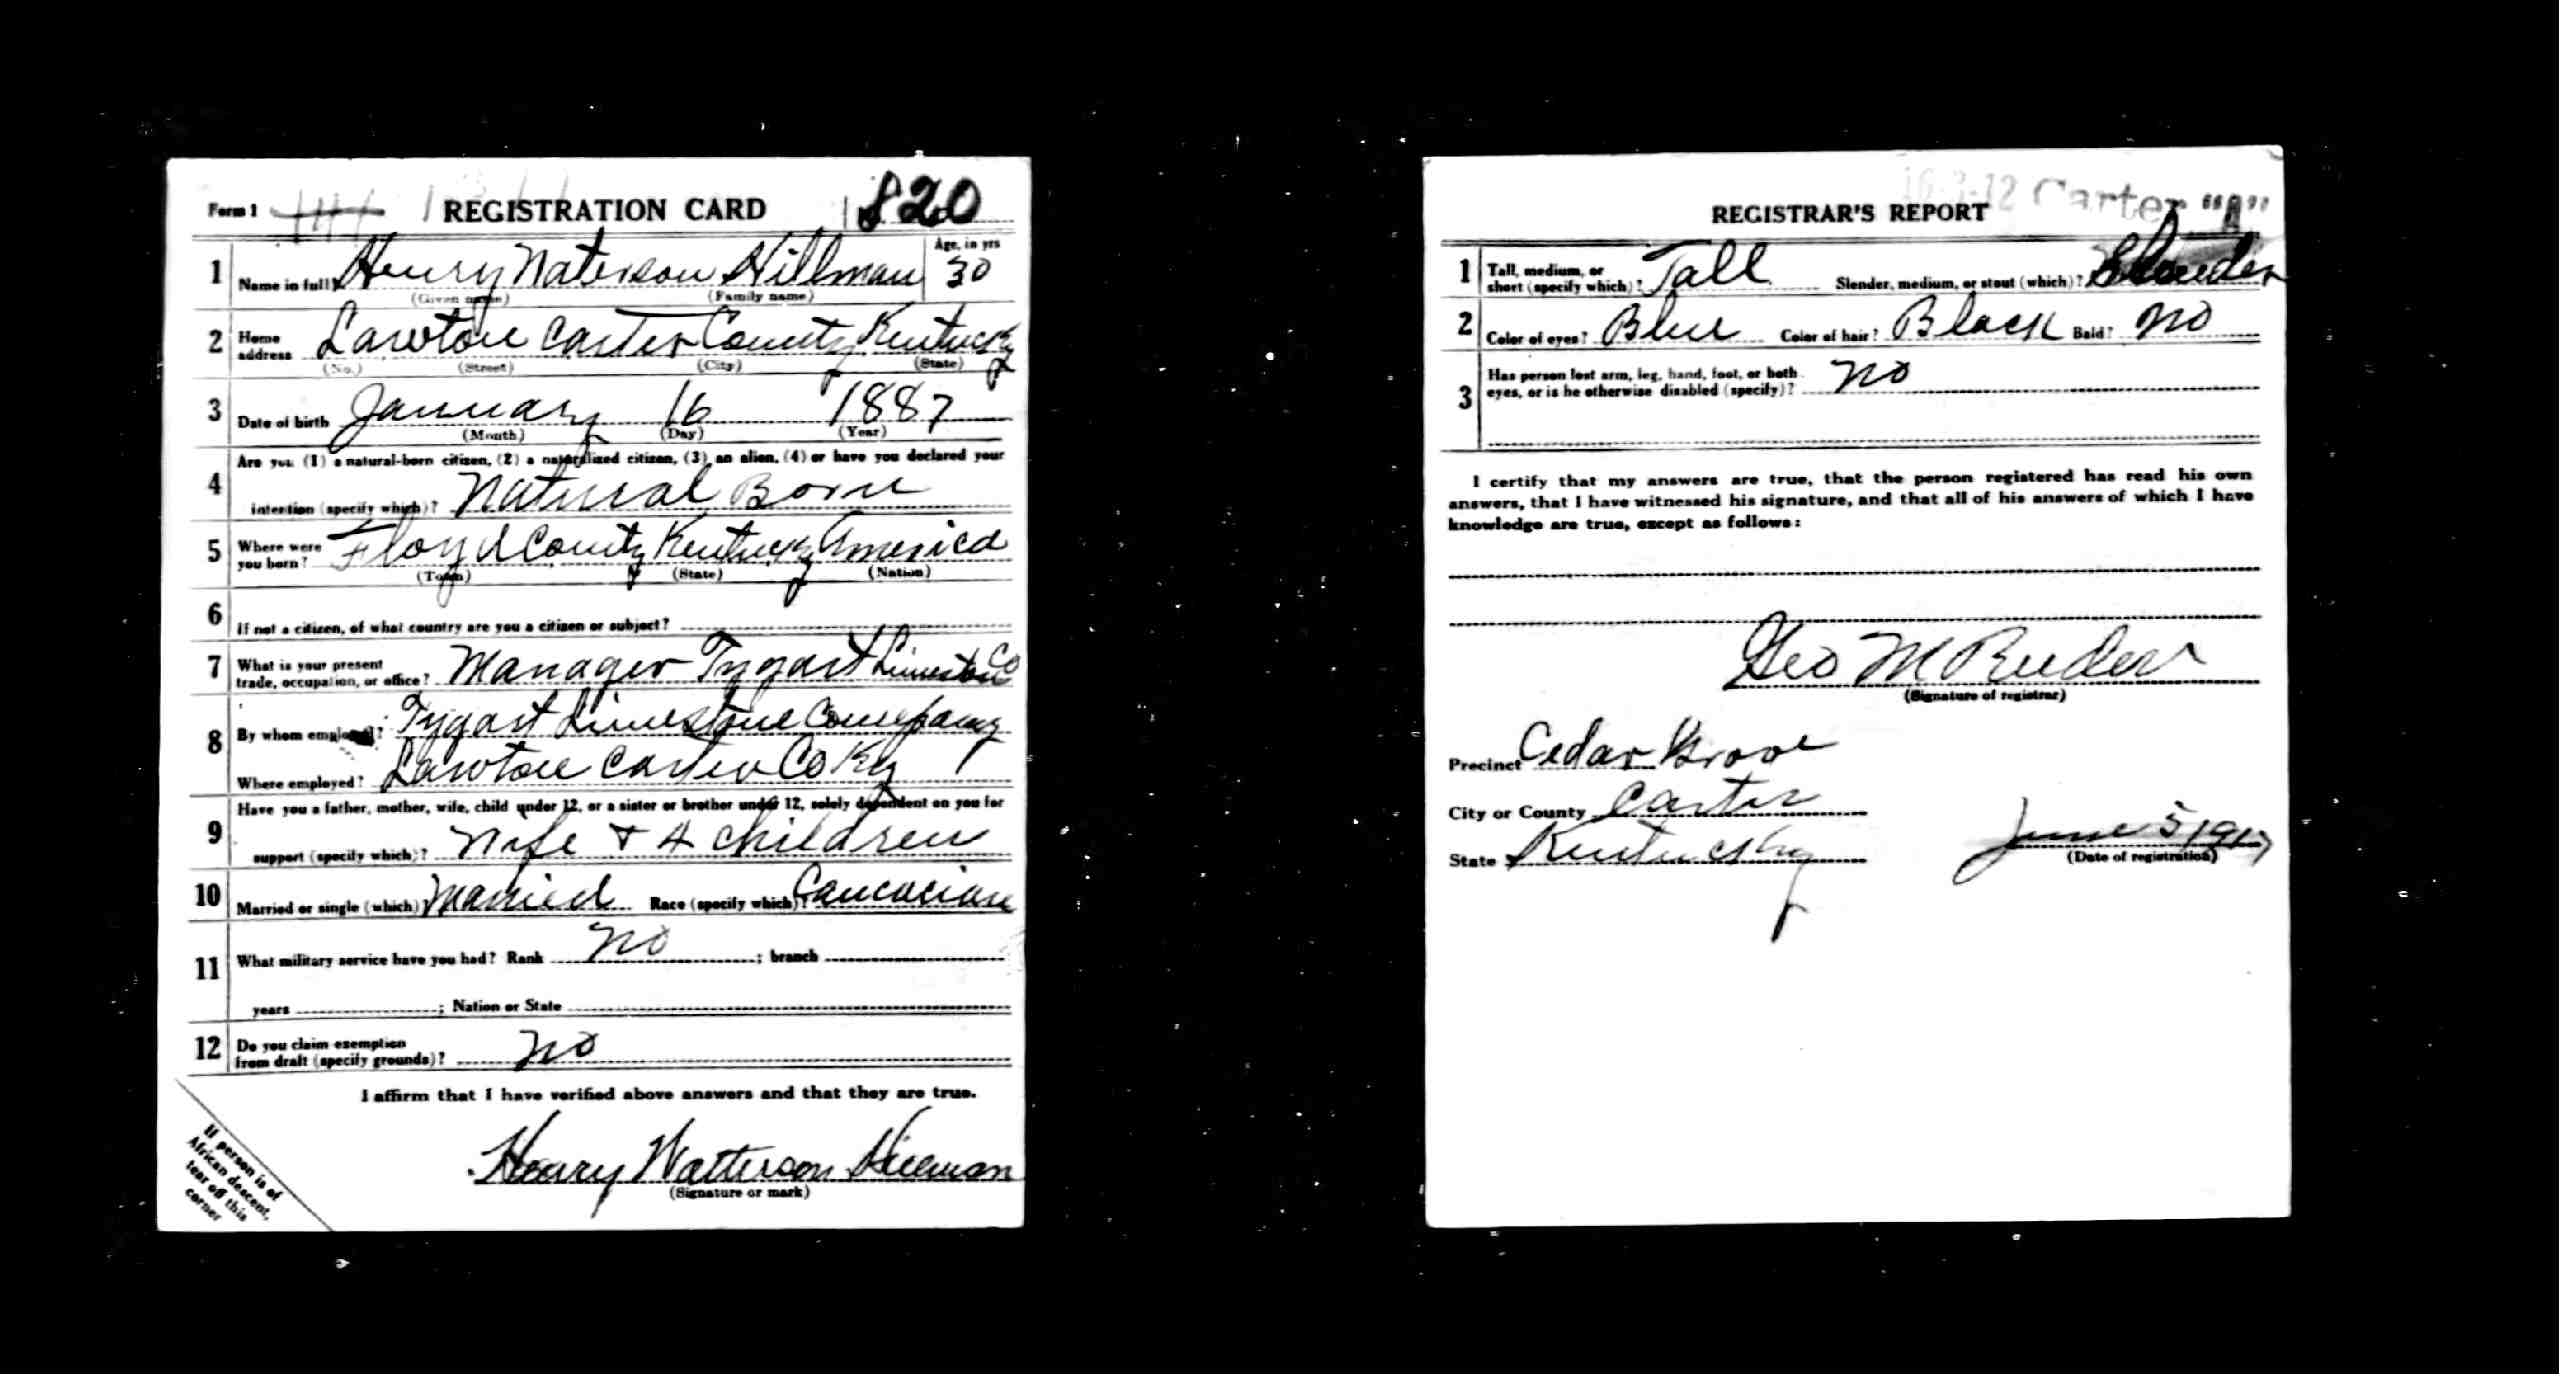 Form 1 REGISTRATION CARD 820
1 Name in full? Henry Waterson Hillman Age, in yrs 30
(Given name) (Family name)
2 Home address Lawton Carter County Kentucky
(No.) (Street) (City) (State)
3 Date of birth January 16 1887
(Month) (Day) (Year)
4 Are you (1) a natural-born citizen, (2) a naturalized citizen, (3) an alien, (4) or have you declared your
intention (specify which)? Natural Born
5 Where were you born? Floyd County Kentucky America
(Town) (State) (Nation)
6 If not a citizen, of what country are you a citizen or subject?
7 What is your present trade, occupation, or office? Manager Tygart Limestone Co
8 By whom employed? Tygart Limestone Company
Where employed? Lawton Carter Co Ky
9 Have you a father, mother, wife, child under 12, or a sister or brother under 12, solely dependent on you for
support (specify which)? Wife + 4 children
10 Married or single (which)? Married Race (specify which)? Caucasian
11 What military service have you had? Rank No ; branch
years ; Nation or State
12 Do you claim exemption from draft (specify grounds)? No
I affirm that I have verified above answers and that they are true.
Henry Watterson Hillman
(Signature or mark)
If person is of
African descent,
tear off this
corner
16-3-12 Carter "A"
REGISTRAR'S REPORT
1 Tall, medium, or short (specify which)? Tall Slender, medium, or stout (which)? Slender
2 Color of eyes? Blue Color of hair? Black Bald? No
3 Has person lost arm, leg, hand, foot, or both eyes, or is he otherwise disabled (specify)? No
I certify that my answers are true, that the person registered has read his own
answers, that I have witnessed his signature, and that all of his answers of which I have
knowledge are true, except as follows:
Geo M Reeder
(Signature of registrar)
Precinct Cedar Grove
City or County Carter
State Kentucky June 5 1917
(Date of registration)